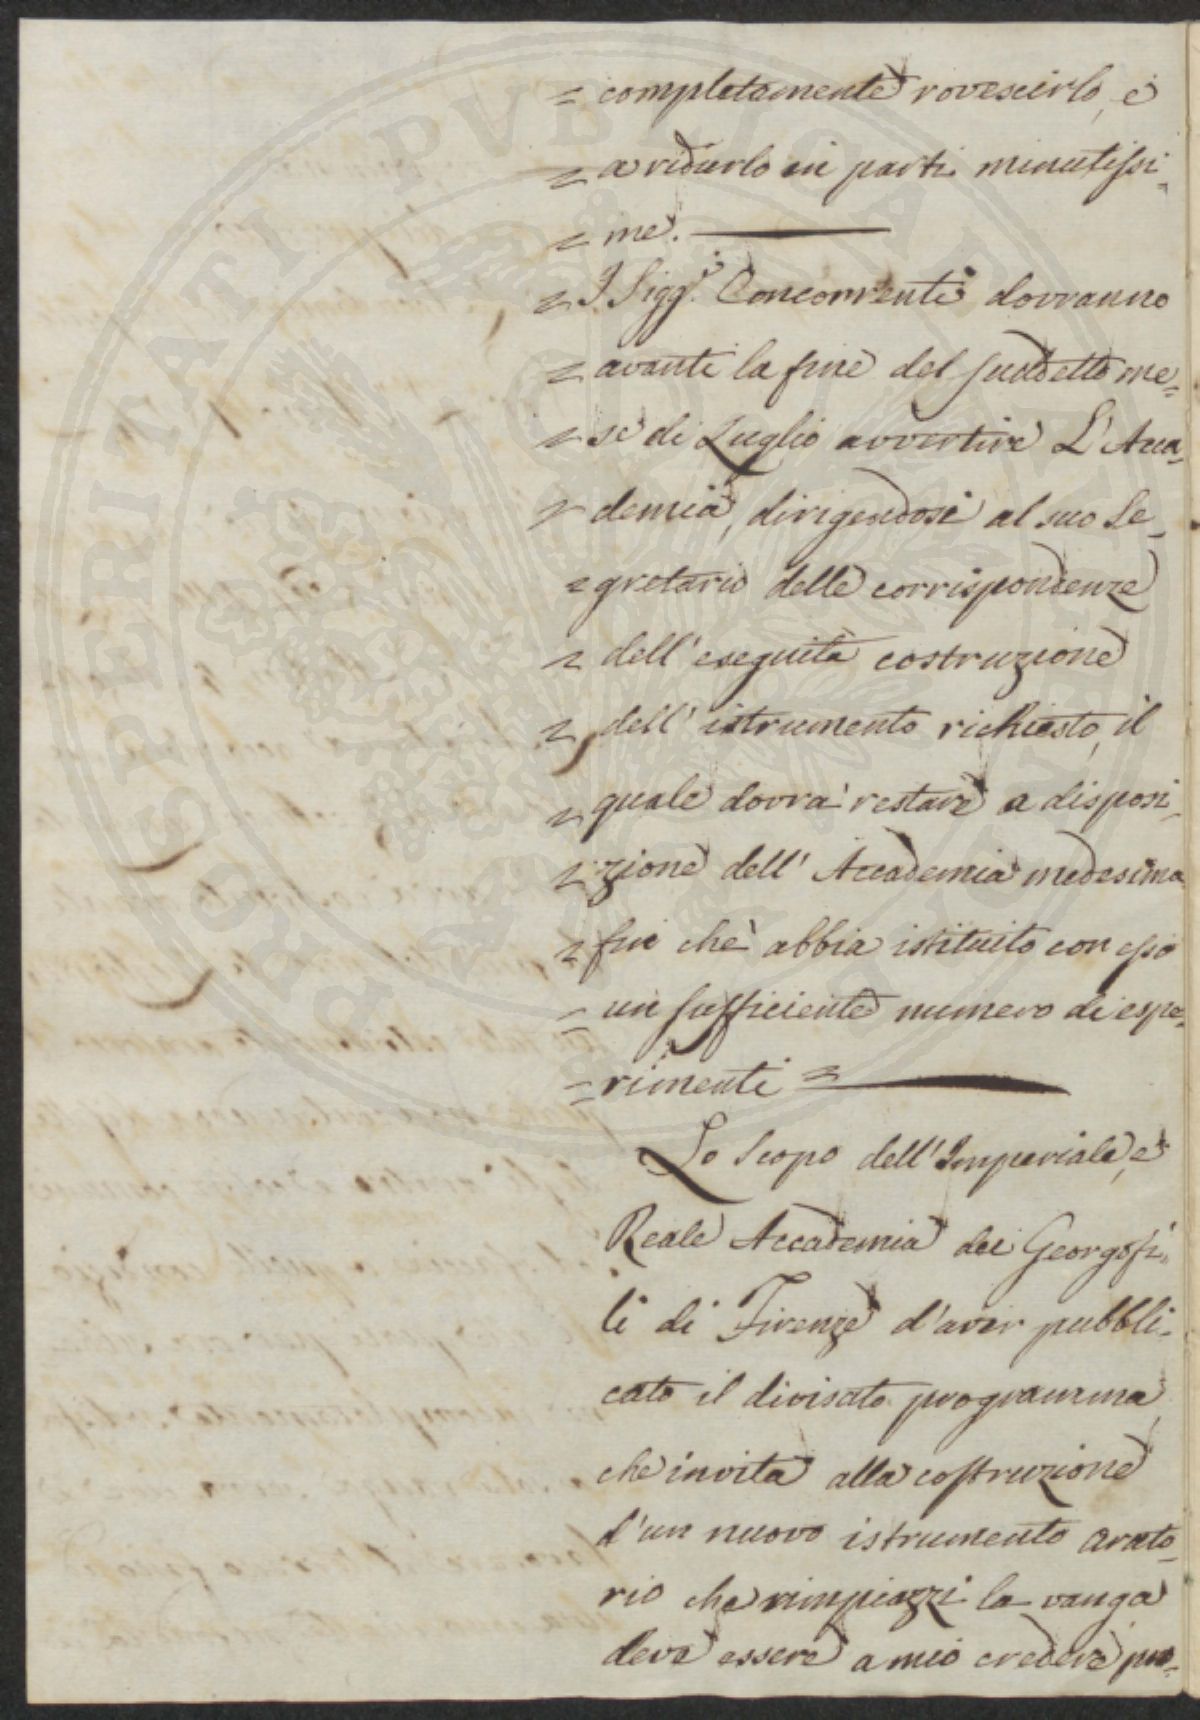 = completamente rovescirlo, e
= a ridurlo in parti minutissi=
= me.
= I Sigg.ri Concorrenti dovranno
= avanti la fine del suddetto me=
= se di Luglio avvertire L'Acca=
= demia, dirigendosi al suo Se=
= gretario delle corrispondenze
= dell'eseguita costruzione
= dell'istrumento richiesto, il
= quale dovrà restare a disposi=
= zione dell'Accademia medesima
= fin chè abbia istituito con esso
= un sufficiente numero di espe=
= rimenti =
Lo Scopo dell'Imperiale, e
Reale Accademia dei Georgofi=
li di Firenze d'aver pubbli=
cato il divisato programma,
che invita alla costruzione
d'un nuovo istrumento arato=
rio che rimpiazzi la vanga
deve essere a mio credere pro=
PROSPERITATI PUBLICAE AUGENDAE